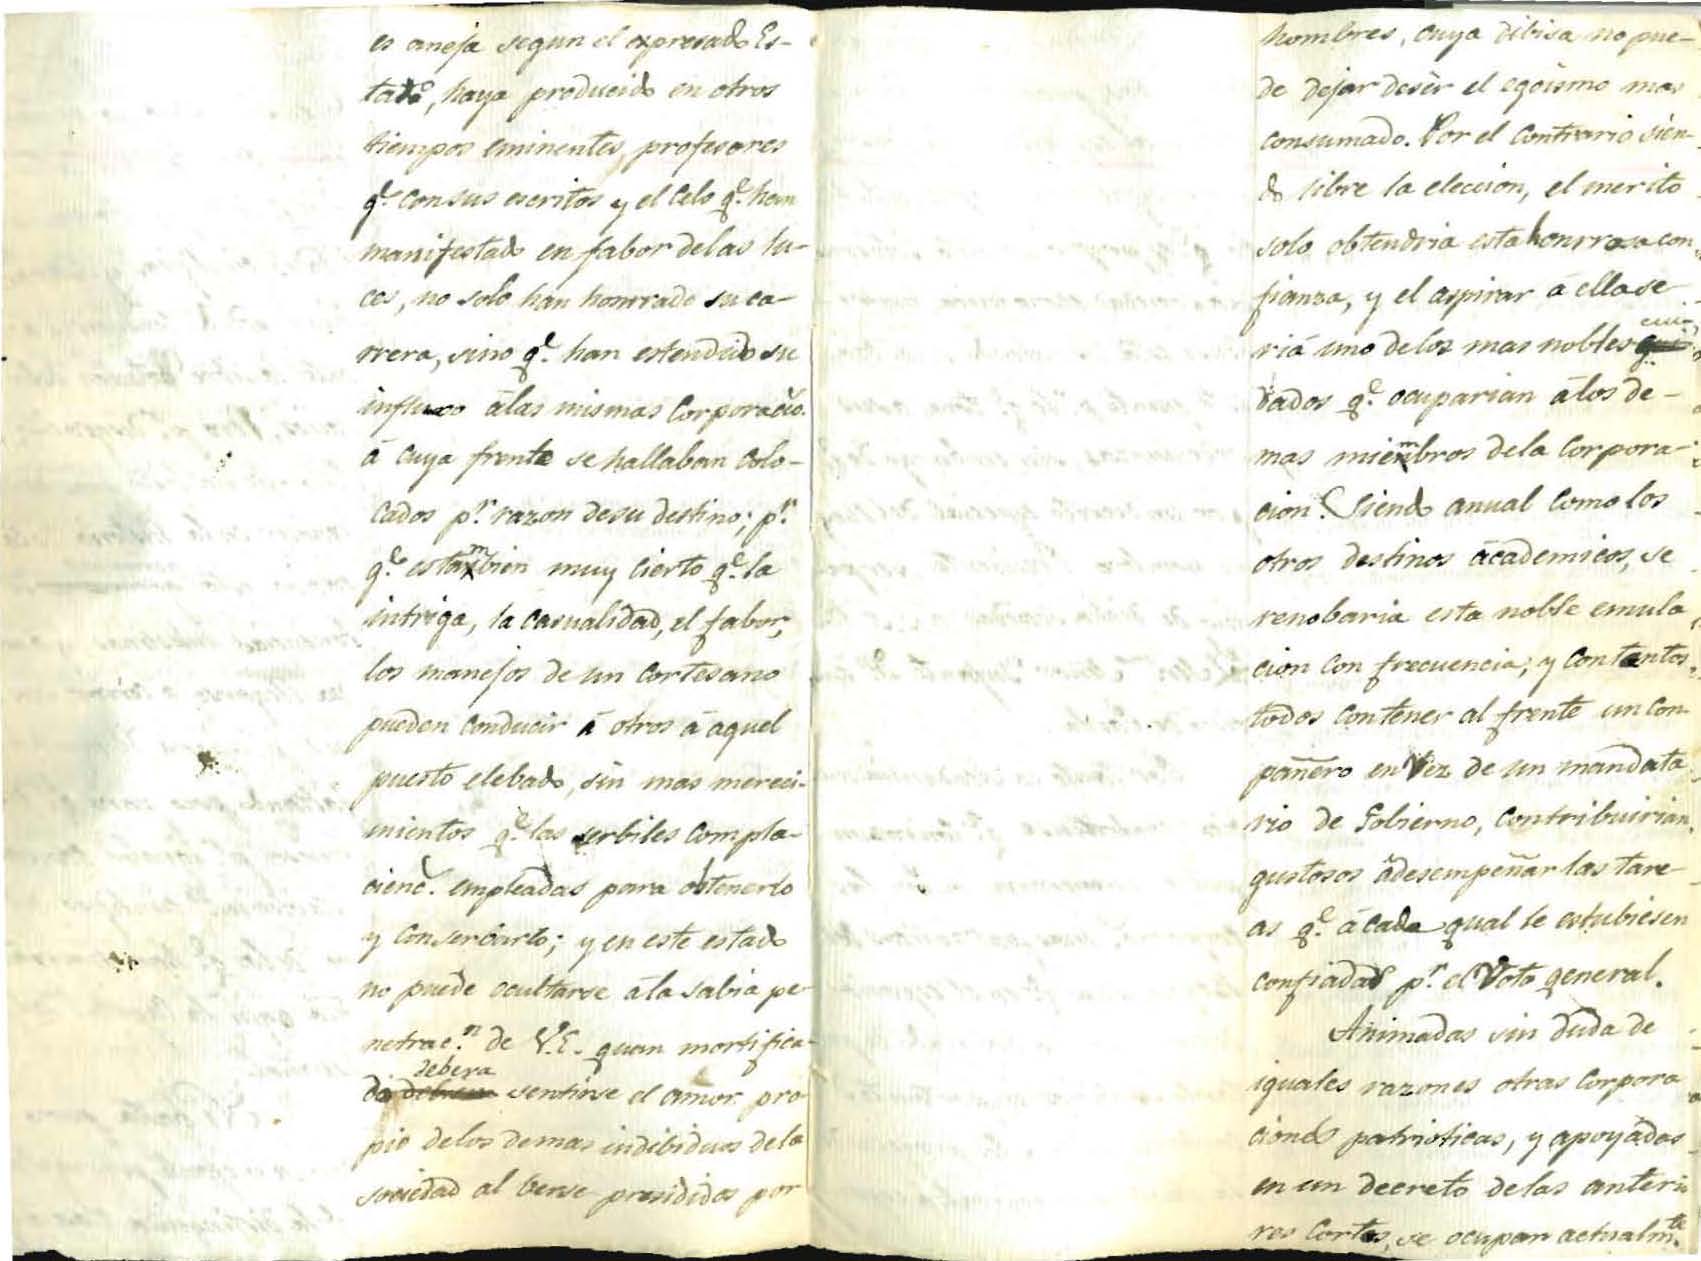 es aneja segun el expresado Es-
tado, haya producido en otros
tiempos eminentes profesores
q.e con sus escritos y el Celo q.e han
manifestado en fabor delas lu-
ces, no solo han honrrado su ca-
rrera, sino q.e han estendido su
influxo álas mismas Corporacio.
á cuya frente se hallaban Colo-
cados p.r razon desu destino; p.r
q.e estambien muy Cierto q.e la
intriga, la Casualidad, el fabor,
los manejos de un Cortesano
pueden Conducir á otros á aquel
puesto elebado, sin mas mereci-
mientos q.e las serbiles Compla-
cienc.s empleadas para obtenerlo
y Conserbarlo; y en este estado
no puede ocultarse ala sabia pe-
netrac.n de V.E. quan mortifica-
do debera sentirse el amor pro-
pio delos demas indibiduos dela
sociedad al berse presididos por
hombres, cuya dibisa no pue-
de dejar desèr el egoismo mas
consumado. Por el Contrario sien-
do libre la eleccion, el merito
solo obtendria esta honrrosa con
fianza, y el aspirar á ella se
riá uno delos mas nobles cui-
dados q.e ocuparian álos de-
mas miembros dela Corpora-
cion. Siendo anual Como los
otros destinos ácademicos, se
renobaria esta noble emula
cion Con frecuencia; y Contentos
todos Con tener al frente un Con
pañero en Vez de un mandata
rio de Gobierno, Contribuirian
gustosos ádesempeñar las tare-
as q.e ácada qual le estubiesen
confiadas p.r el Voto general.
Animadas sin duda de
iguales razones otras Corpora
ciones patrioticas, y apoyadas
en un decreto delas anterio
res Cortes, se ocupan actualm.te